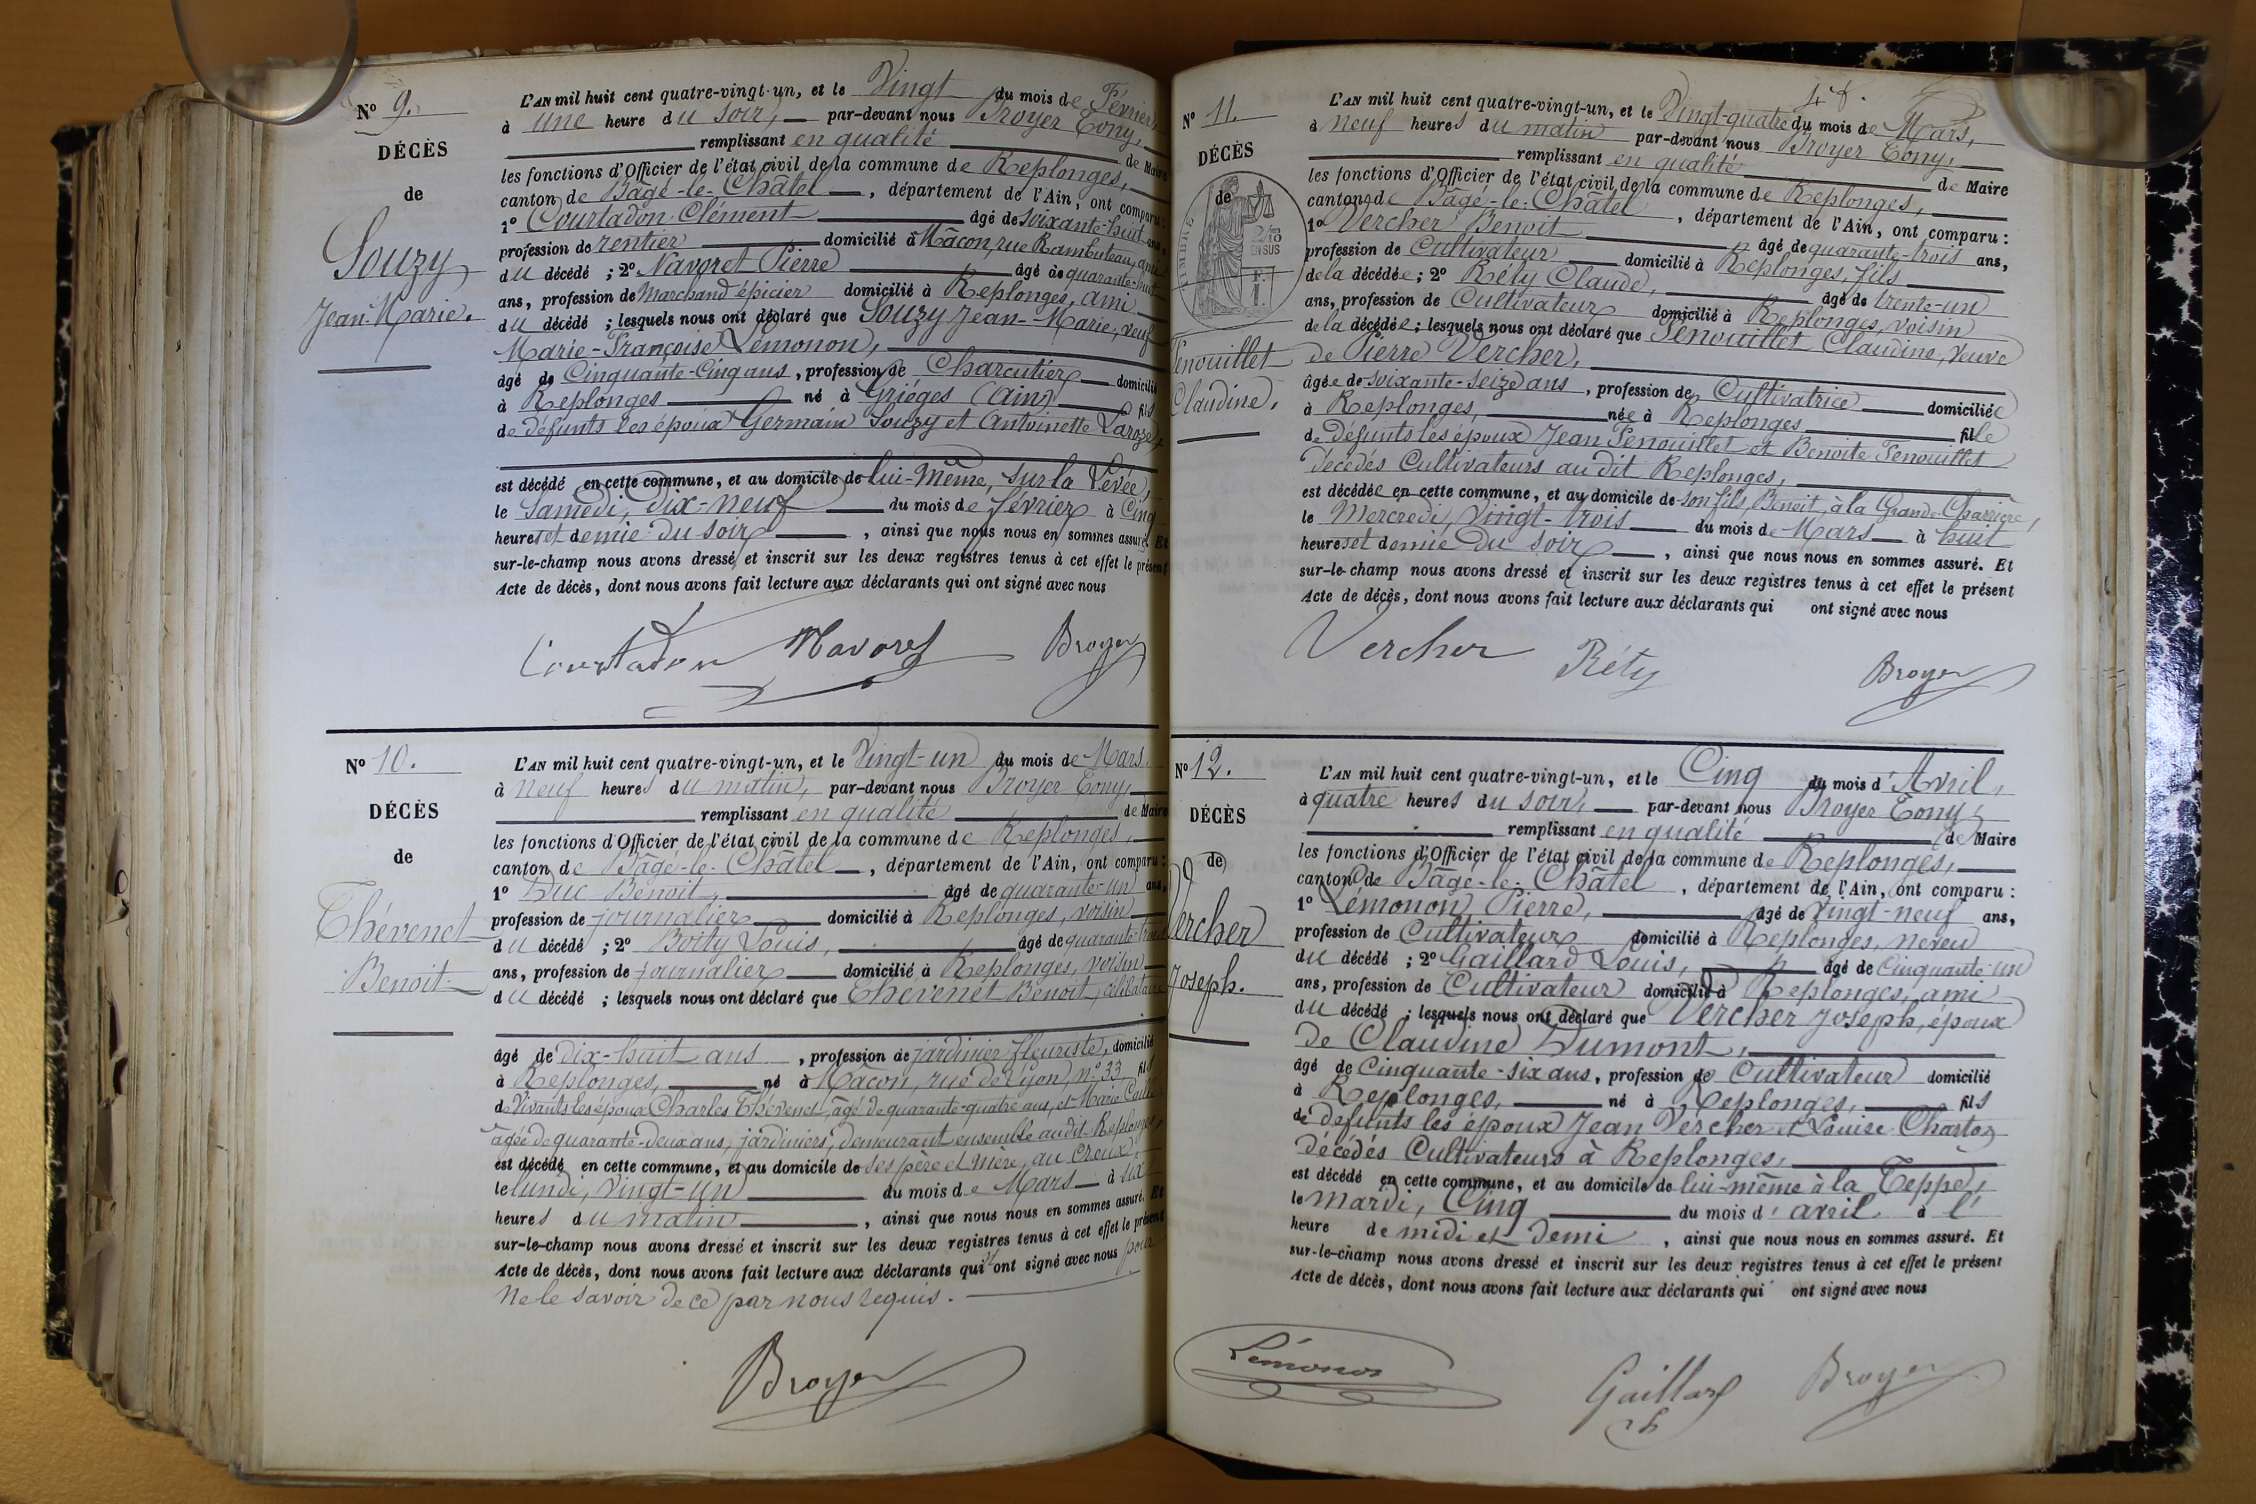 N° 9.
DÉCÈS
de
Souzy
Jean-Marie.
L'AN mil huit cent quatre-vingt-un, et le Vingt du mois de Février,
à une heure du soir, par-devant nous Broyer Tony,
remplissant en qualité de Maire
les fonctions d'Officier de l'état civil de la commune de Replonges,
canton de Bâgé-le-Châtel, département de l'Ain, ont comparu :
1° Courtadon Clément âgé de soixante-huit ans,
profession de rentier domicilié à Mâcon, rue Rambuteau, ami
du décédé ; 2° Navoret Pierre âgé de quarante-huit
ans, profession de Marchand épicier domicilié à Replonges, ami
du décédé ; lesquels nous ont déclaré que Souzy Jean-Marie, veuf
Marie-Françoise Lémonon,
âgé de Cinquante-Cinq ans, profession de Charcutier domicilié
à Replonges né à Griéges (Ain) fils
de défunts les époux Germain Souzy et Antoinette Laroze,
est décédé en cette commune, et au domicile de lui-même, sur la Levée,
le Samedi, dix-neuf du mois de février à Cinq
heures et demie du soir, ainsi que nous nous en sommes assuré. Et
sur-le-champ nous avons dressé et inscrit sur les deux registres tenus à cet effet le présent
Acte de décès, dont nous avons fait lecture aux déclarants qui ont signé avec nous
Courtadon Navoret Broyer
N° 10.
DÉCÈS
de
Thévenet
Benoit
L'AN mil huit cent quatre-vingt-un, et le Vingt-un du mois de Mars
à neuf heures du matin, par-devant nous Broyer Tony,
remplissant en qualité de Maire
les fonctions d'Officier de l'état civil de la commune de Replonges,
canton de Bâgé-le-Châtel, département de l'Ain, ont comparu :
1° Duc Benoit, âgé de quarante-un ans,
profession de journalier domicilié à Replonges, voisin
du décédé ; 2° Boity Louis, âgé de quarante-trois
ans, profession de journalier domicilié à Replonges, voisin
du décédé ; lesquels nous ont déclaré que Thévenet Benoit, célibataire
âgé de dix-huit ans, profession de jardinier fleuriste, domicilié
à Replonges, né à Mâcon, rue de Lyon, n° 33 fils
de Vivants les époux Charles Thévenet, âgé de quarante-quatre ans, et Marie
âgée de quarante-deux ans, jardiniers, demeurant ensemble audit Replonges,
est décédé en cette commune, et au domicile de ses père et mère, au Creux,
le lundi, Vingt-un du mois de Mars à six
heures du matin, ainsi que nous nous en sommes assuré. Et
sur-le-champ nous avons dressé et inscrit sur les deux registres tenus à cet effet le présent
Acte de décès, dont nous avons fait lecture aux déclarants qui n'ont signé avec nous pour
ne le savoir de ce par nous requis.
Broyer
N° 11.
DÉCÈS
de
TIMBRE
2/10 EN SUS
Fenouillet
Claudine.
L'AN mil huit cent quatre-vingt-un, et le Vingt-quatre du mois de Mars,
à neuf heures du matin par-devant nous Broyer Tony,
remplissant en qualité de Maire
les fonctions d'Officier de l'état civil de la commune de Replonges,
canton de Bâgé-le-Châtel, département de l'Ain, ont comparu :
1° Vercher Benoit âgé de quarante-trois ans,
profession de Cultivateur domicilié à Replonges, fils
de la décédée ; 2° Réty Claude, âgé de trente-un
ans, profession de Cultivateur domicilié à Replonges, voisin
de la décédée ; lesquels nous ont déclaré que Fenouillet Claudine, veuve
de Pierre Vercher,
âgée de soixante-seize ans, profession de Cultivatrice domiciliée
à Replonges, née à Replonges fille
de Défunts les époux Jean Fenouillet et Benoite Fenouillet
décédés Cultivateurs au dit Replonges,
est décédée en cette commune, et au domicile de son fils, Benoit, à la Grande Charrière,
le Mercredi, Vingt-trois du mois de Mars à huit
heures et demie du soir, ainsi que nous nous en sommes assuré. Et
sur-le-champ nous avons dressé et inscrit sur les deux registres tenus à cet effet le présent
Acte de décès, dont nous avons fait lecture aux déclarants qui ont signé avec nous
Vercher Réty Broyer
N° 12.
DÉCÈS
de
Vercher
Joseph.
L'AN mil huit cent quatre-vingt-un, et le Cinq du mois d'Avril,
à quatre heures du soir, par-devant nous Broyer Tony,
remplissant en qualité de Maire
les fonctions d'Officier de l'état civil de la commune de Replonges,
canton de Bâgé-le-Châtel, département de l'Ain, ont comparu :
1° Lémonon Pierre, âgé de Vingt-neuf ans,
profession de Cultivateur domicilié à Replonges, neveu
du décédé ; 2° Gaillard Louis, âgé de Cinquante-un
ans, profession de Cultivateur domicilié à Replonges, ami
du décédé ; lesquels nous ont déclaré que Vercher Joseph, époux
de Claudine Dumont,
âgé de Cinquante-six ans, profession de Cultivateur domicilié
à Replonges, né à Replonges, fils
de défunts les époux Jean Vercher et Louise Chartoz
décédés Cultivateurs à Replonges,
est décédé en cette commune, et au domicile de lui-même à la Teppe,
le mardi, Cinq du mois d'avril à l'
heure de midi et demi, ainsi que nous nous en sommes assuré. Et
sur-le-champ nous avons dressé et inscrit sur les deux registres tenus à cet effet le présent
Acte de décès, dont nous avons fait lecture aux déclarants qui ont signé avec nous
Lémonon Gaillard Broyer